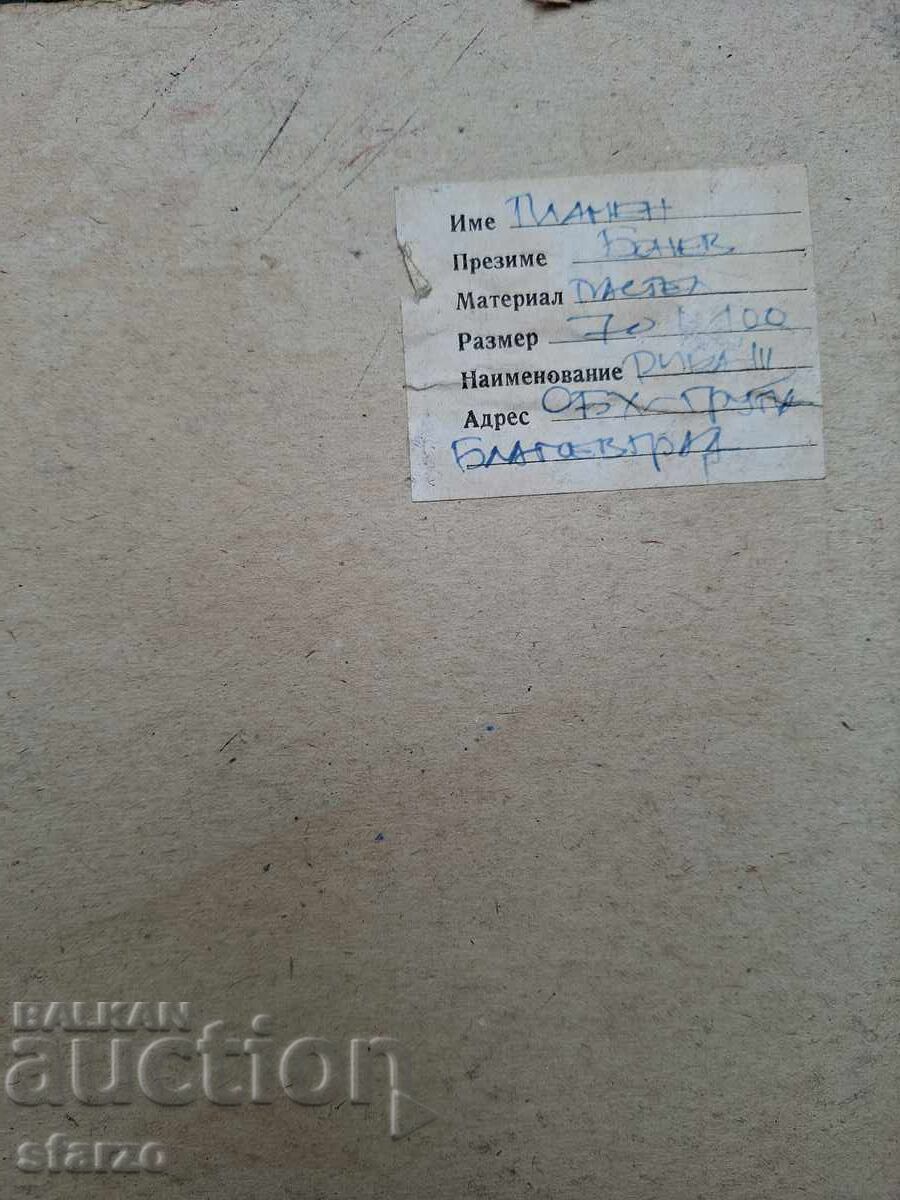 Име ПЛАМЕН
Презиме БОНЕВ
Материал ПАСТЕЛ
Размер 70 X 100
Наименование РИБА III
Адрес ОБХ-ГРУПА
БЛАГОЕВГРАД
BALKAN
auction
sfarzo